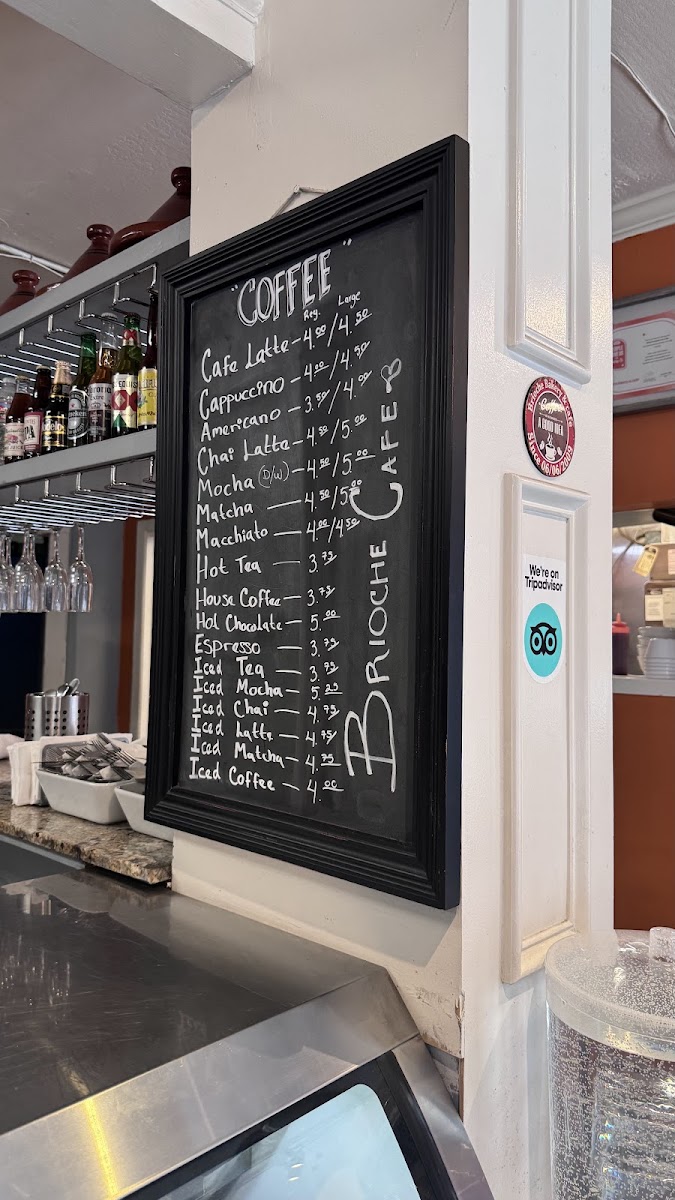 "COFFEE"
Reg. Large
Cafe Latte — 4.00/4.50
Cappuccino — 4.00/4.50
Americano — 3.50/4.00
Chai Latte — 4.50/5.00
Mocha (D/W) — 4.50/5.00
Matcha — 4.50/5.00
Macchiato — 4.00/4.50
Hot Tea — 3.75
House Coffee — 3.75
Hot Chocolate — 5.00
Espresso — 3.75
Iced Tea — 3.75
Iced Mocha — 5.25
Iced Chai — 4.75
Iced Latte — 4.75
Iced Matcha — 4.75
Iced Coffee — 4.00
BRIOCHE CAFE
Brioche Bakery & Cafe
Coffee
Since 06/06/2009
We're on
Tripadvisor